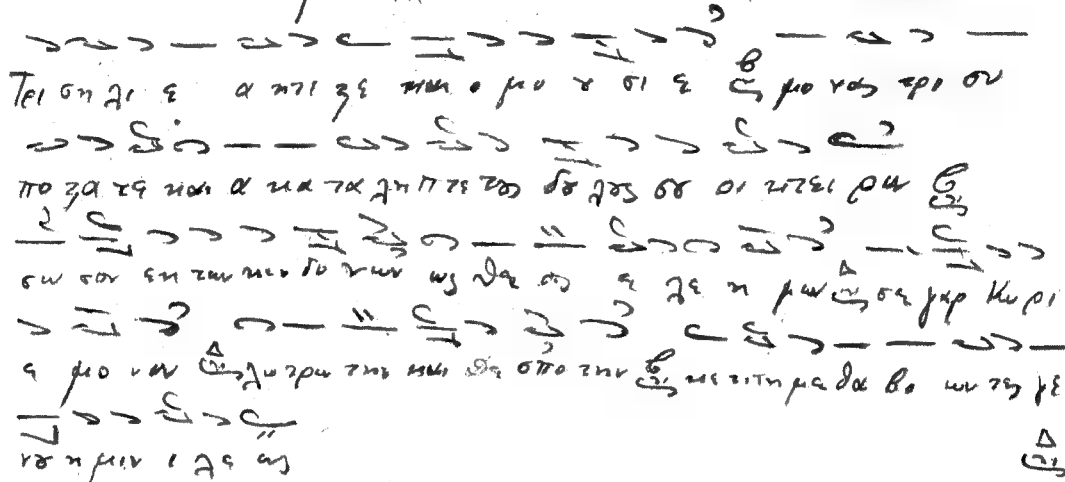 Τρι ση λι ε α κτι ςε και ο μο ȣ σι ε μο νας τρι συ
πο ςα τε και α κα τα λη πτε τȣς δȣ λȣς σȣ οι κτει ρων
σω σον εκ των κιν δυ νων ως θε ος ε λε η μων σε γαρ Κυ ρι
ε μο νον λυ τρω την και δε σπο την κε κτη με θα βο ων τες γε
νȣ η μιν ι λε ως